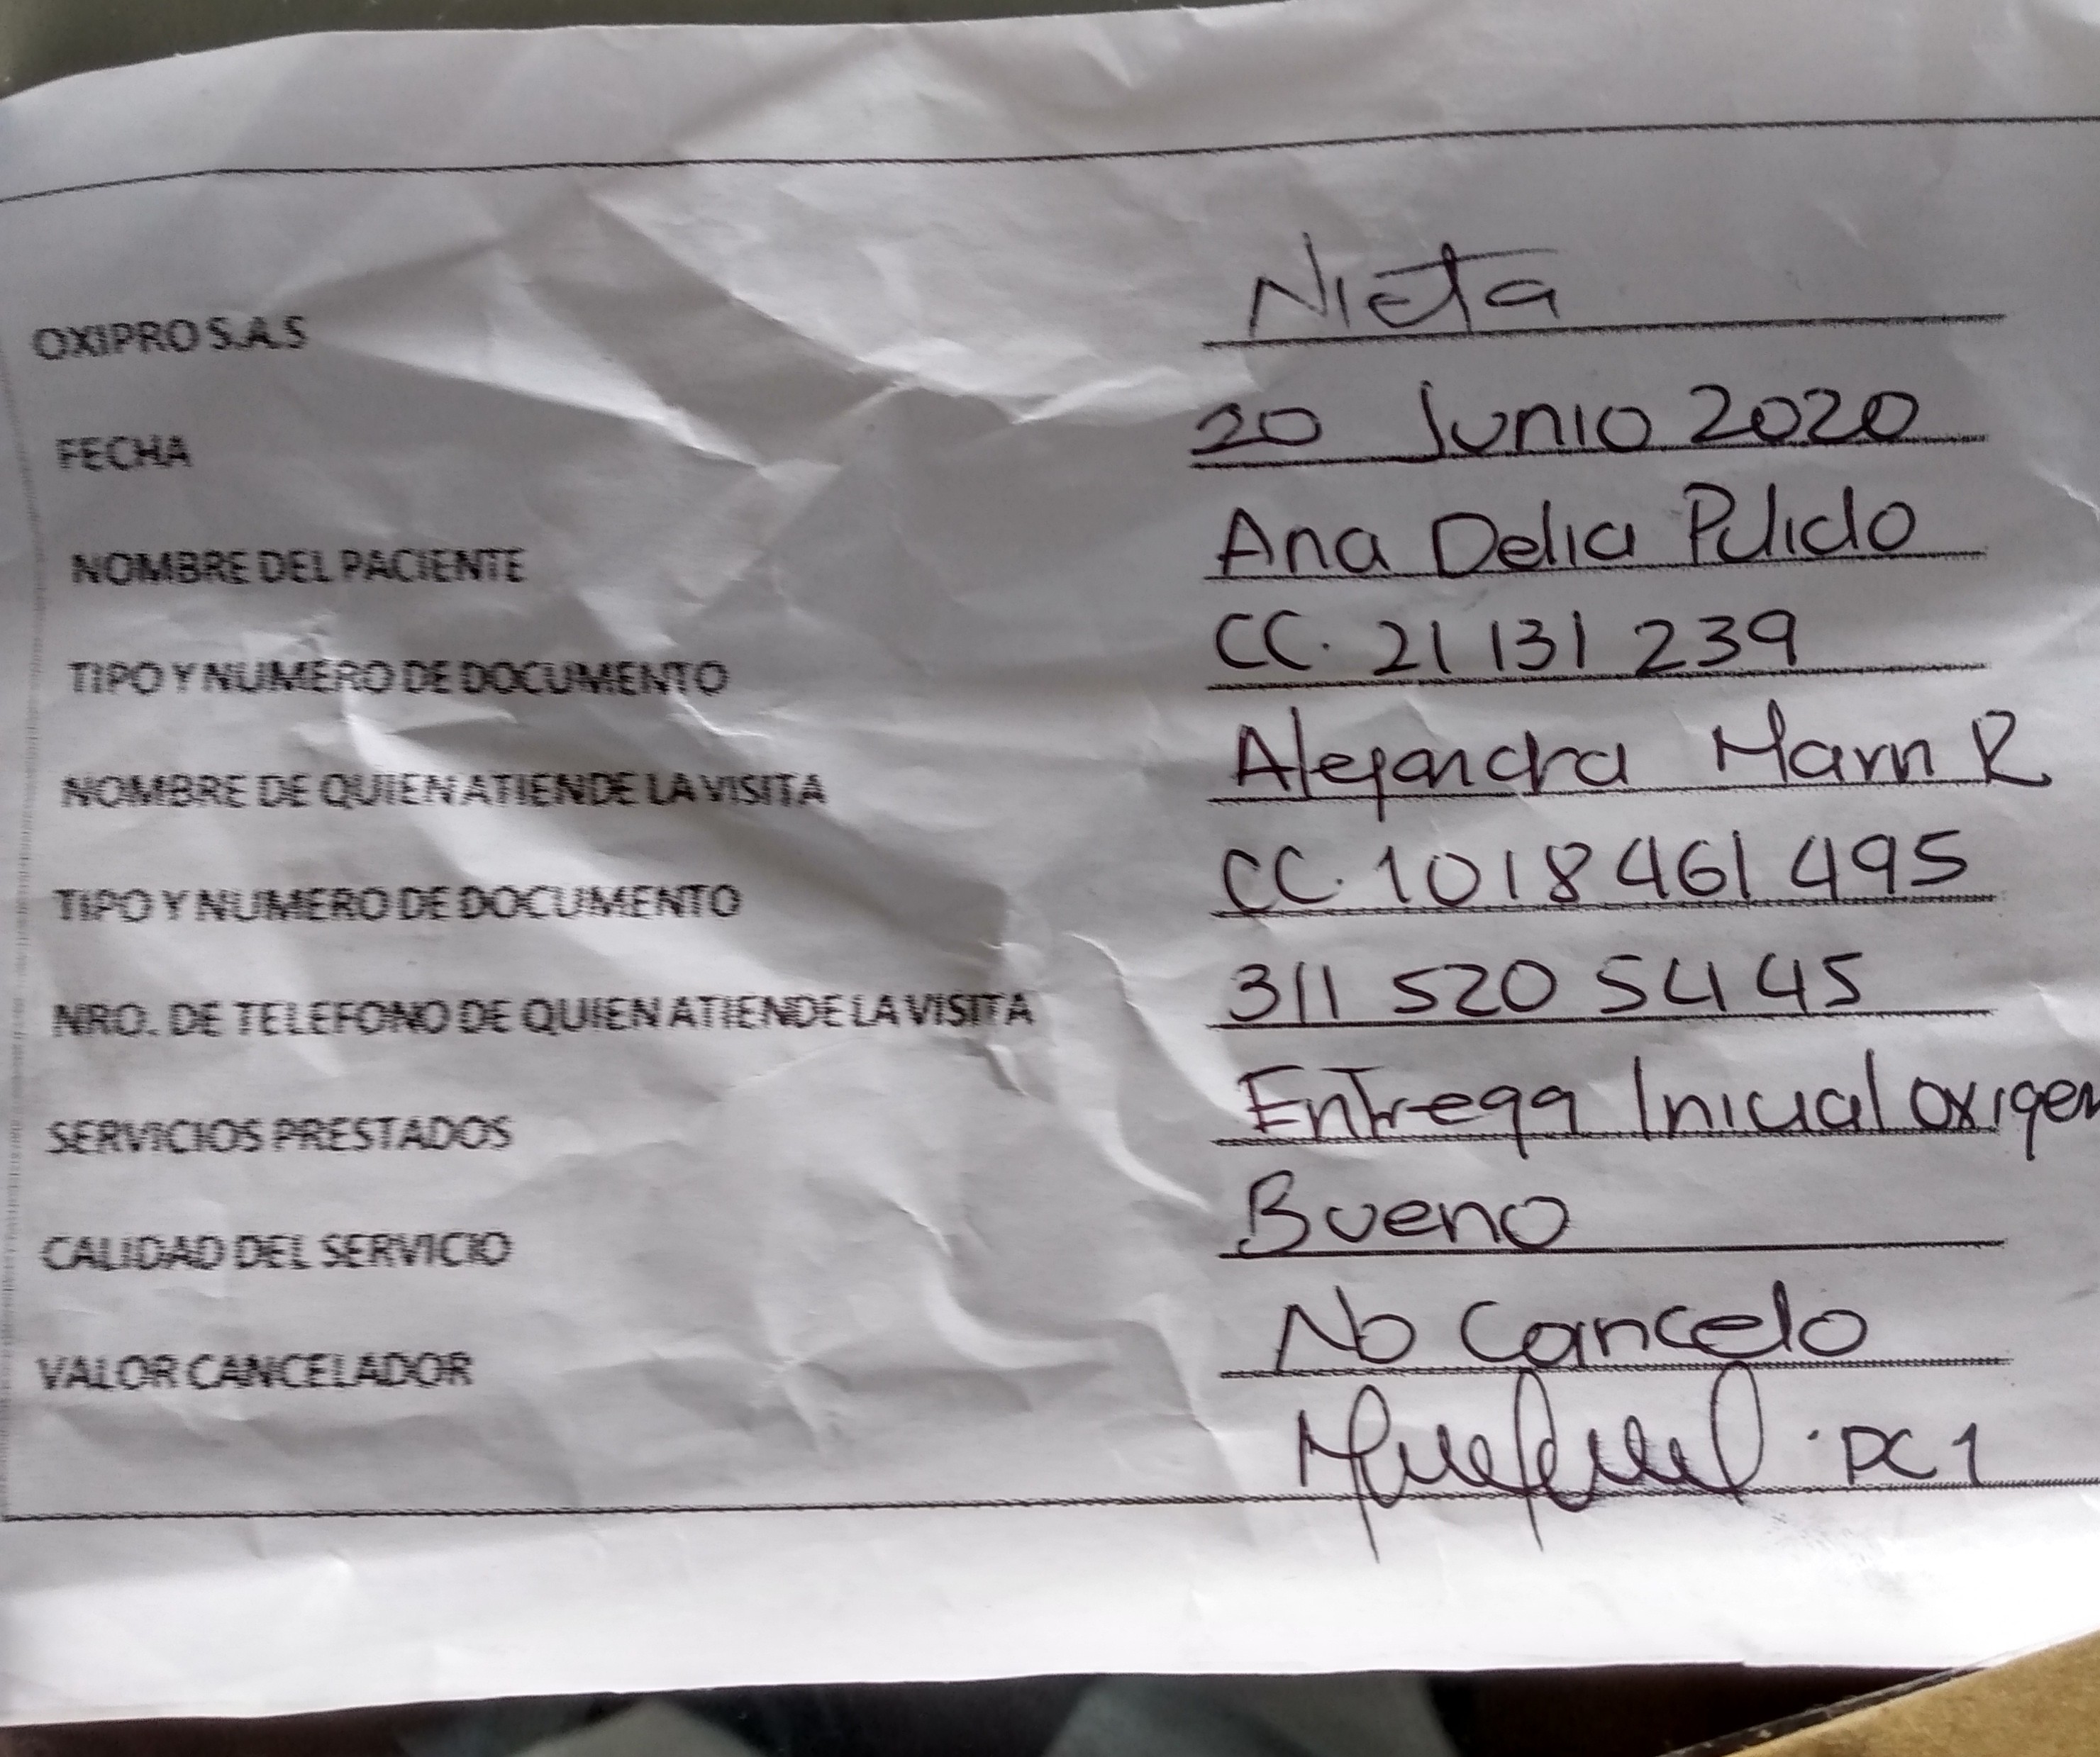 OXIPRO S.A.S Nieta
FECHA 20 Junio 2020
NOMBRE DEL PACIENTE Ana Delia Pulido
TIPO Y NUMERO DE DOCUMENTO CC. 21 131 239
NOMBRE DE QUIEN ATIENDE LA VISITA Alejandra Marin R
TIPO Y NUMERO DE DOCUMENTO CC. 1018 461 495
NRO. DE TELEFONO DE QUIEN ATIENDE LA VISITA 311 520 54 45
SERVICIOS PRESTADOS Entrega Inicial oxigen
CALIDAD DEL SERVICIO Bueno
VALOR CANCELADOR No Cancelo
PC 1